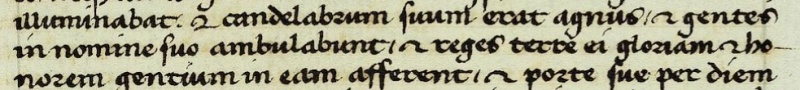 illuminabat. & candelabrum suum erat agnus, & gentes
in nomine suo ambulabunt, & reges terre ei gloriam & ho-
norem gentium in eam afferent, & porte sue per diem